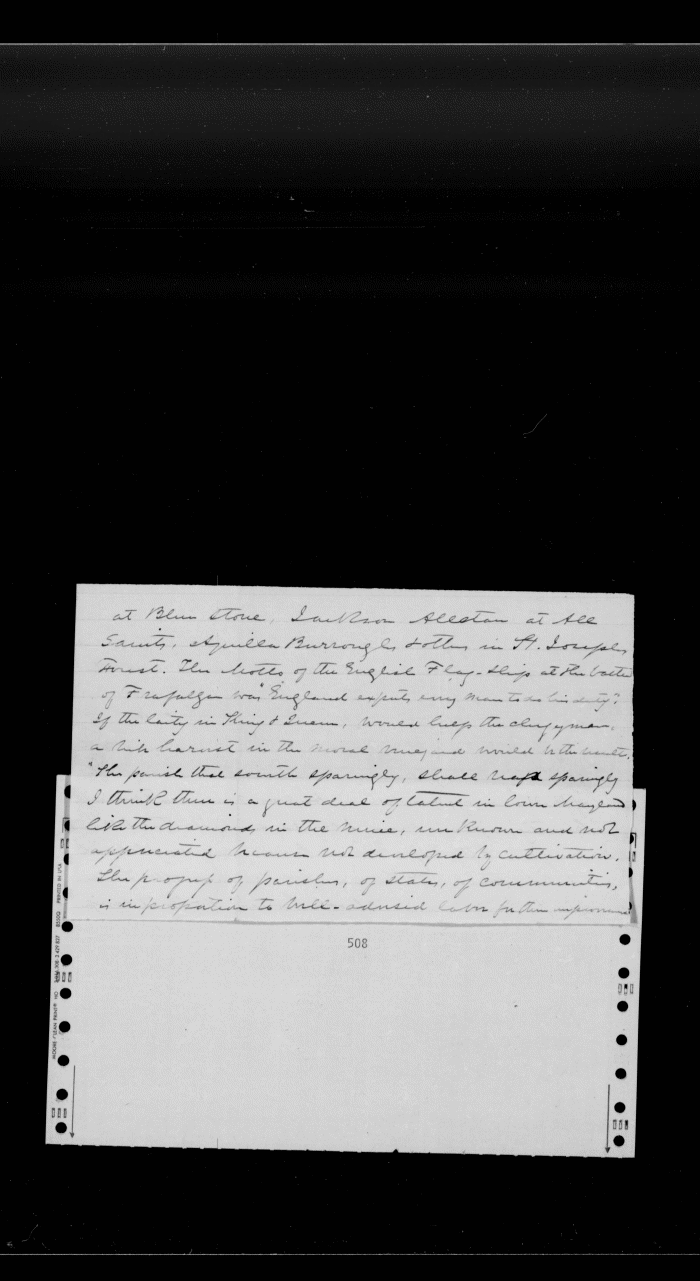 at Blue Stone, Jackson Allstan at All
Saints, Aquilla Burroughs & others in St. Josephs
Forest. The Motto of the English Flag-Ship at the battle
of Trafalgar was "England expects every man to do his duty".
If the laity in King & Queen, would help the clergyman,
a rich harvest in the moral vineyard would be the result.
"The parish that soweth sparingly, shall reap sparingly
I think there is a great deal of talent in lower Maryland
like the diamonds in the mine, unknown and not
appreciated because not developed by cultivation.
The progress of parishes, of states, of communities,
is in proportion to well-advised labor for their improvement
508
PRINTED IN USA